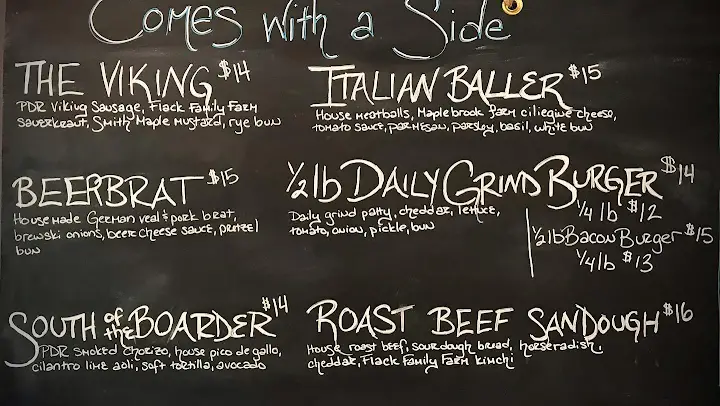 Comes with a Side
THE VIKING $14
PDR Viking Sausage, Flack Family Farm
Sauerkraut, Smith Maple Mustard, rye bun
ITALIAN BALLER $15
House Meatballs, Maplebrook Farm ciliegine cheese,
tomato sauce, parmesan, parsley, basil, white bun
BEERBRAT $15
House Made German veal & pork brat,
brewski onions, beer cheese sauce, pretzel
bun
1/2 lb DAILY GRIND BURGER $14
Daily grind patty, cheddar, lettuce,
tomato, onion, pickle, bun
1/4 lb $12
1/2 lb Bacon Burger $15
1/4 lb $13
SOUTH of the BOARDER $14
PDR Smoked Chorizo, house pico de gallo,
cilantro lime aoli, soft tortilla, avocado
ROAST BEEF SANDOUGH $16
House roast beef, sourdough bread, horseradish,
cheddar, Flack Family Farm kimchi